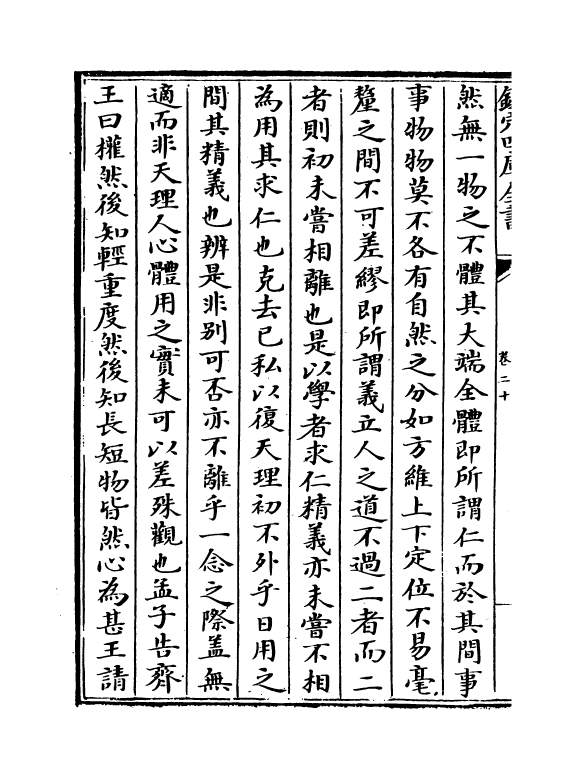 欽定四庫全書
卷二十
然無一物之不體其大端全體即所謂仁而於其間事
事物物莫不各有自然之分如方維上下定位不易毫
釐之間不可差繆即所謂義立人之道不過二者而二
者則初未嘗相離也是以學者求仁精義亦未嘗不相
為用其求仁也克去已私以復天理初不外乎日用之
間其精義也辨是非別可否亦不離乎一念之際蓋無
適而非天理人心體用之實未可以差殊觀也孟子告齊
王曰權然後知輕重度然後知長短物皆然心為甚王請